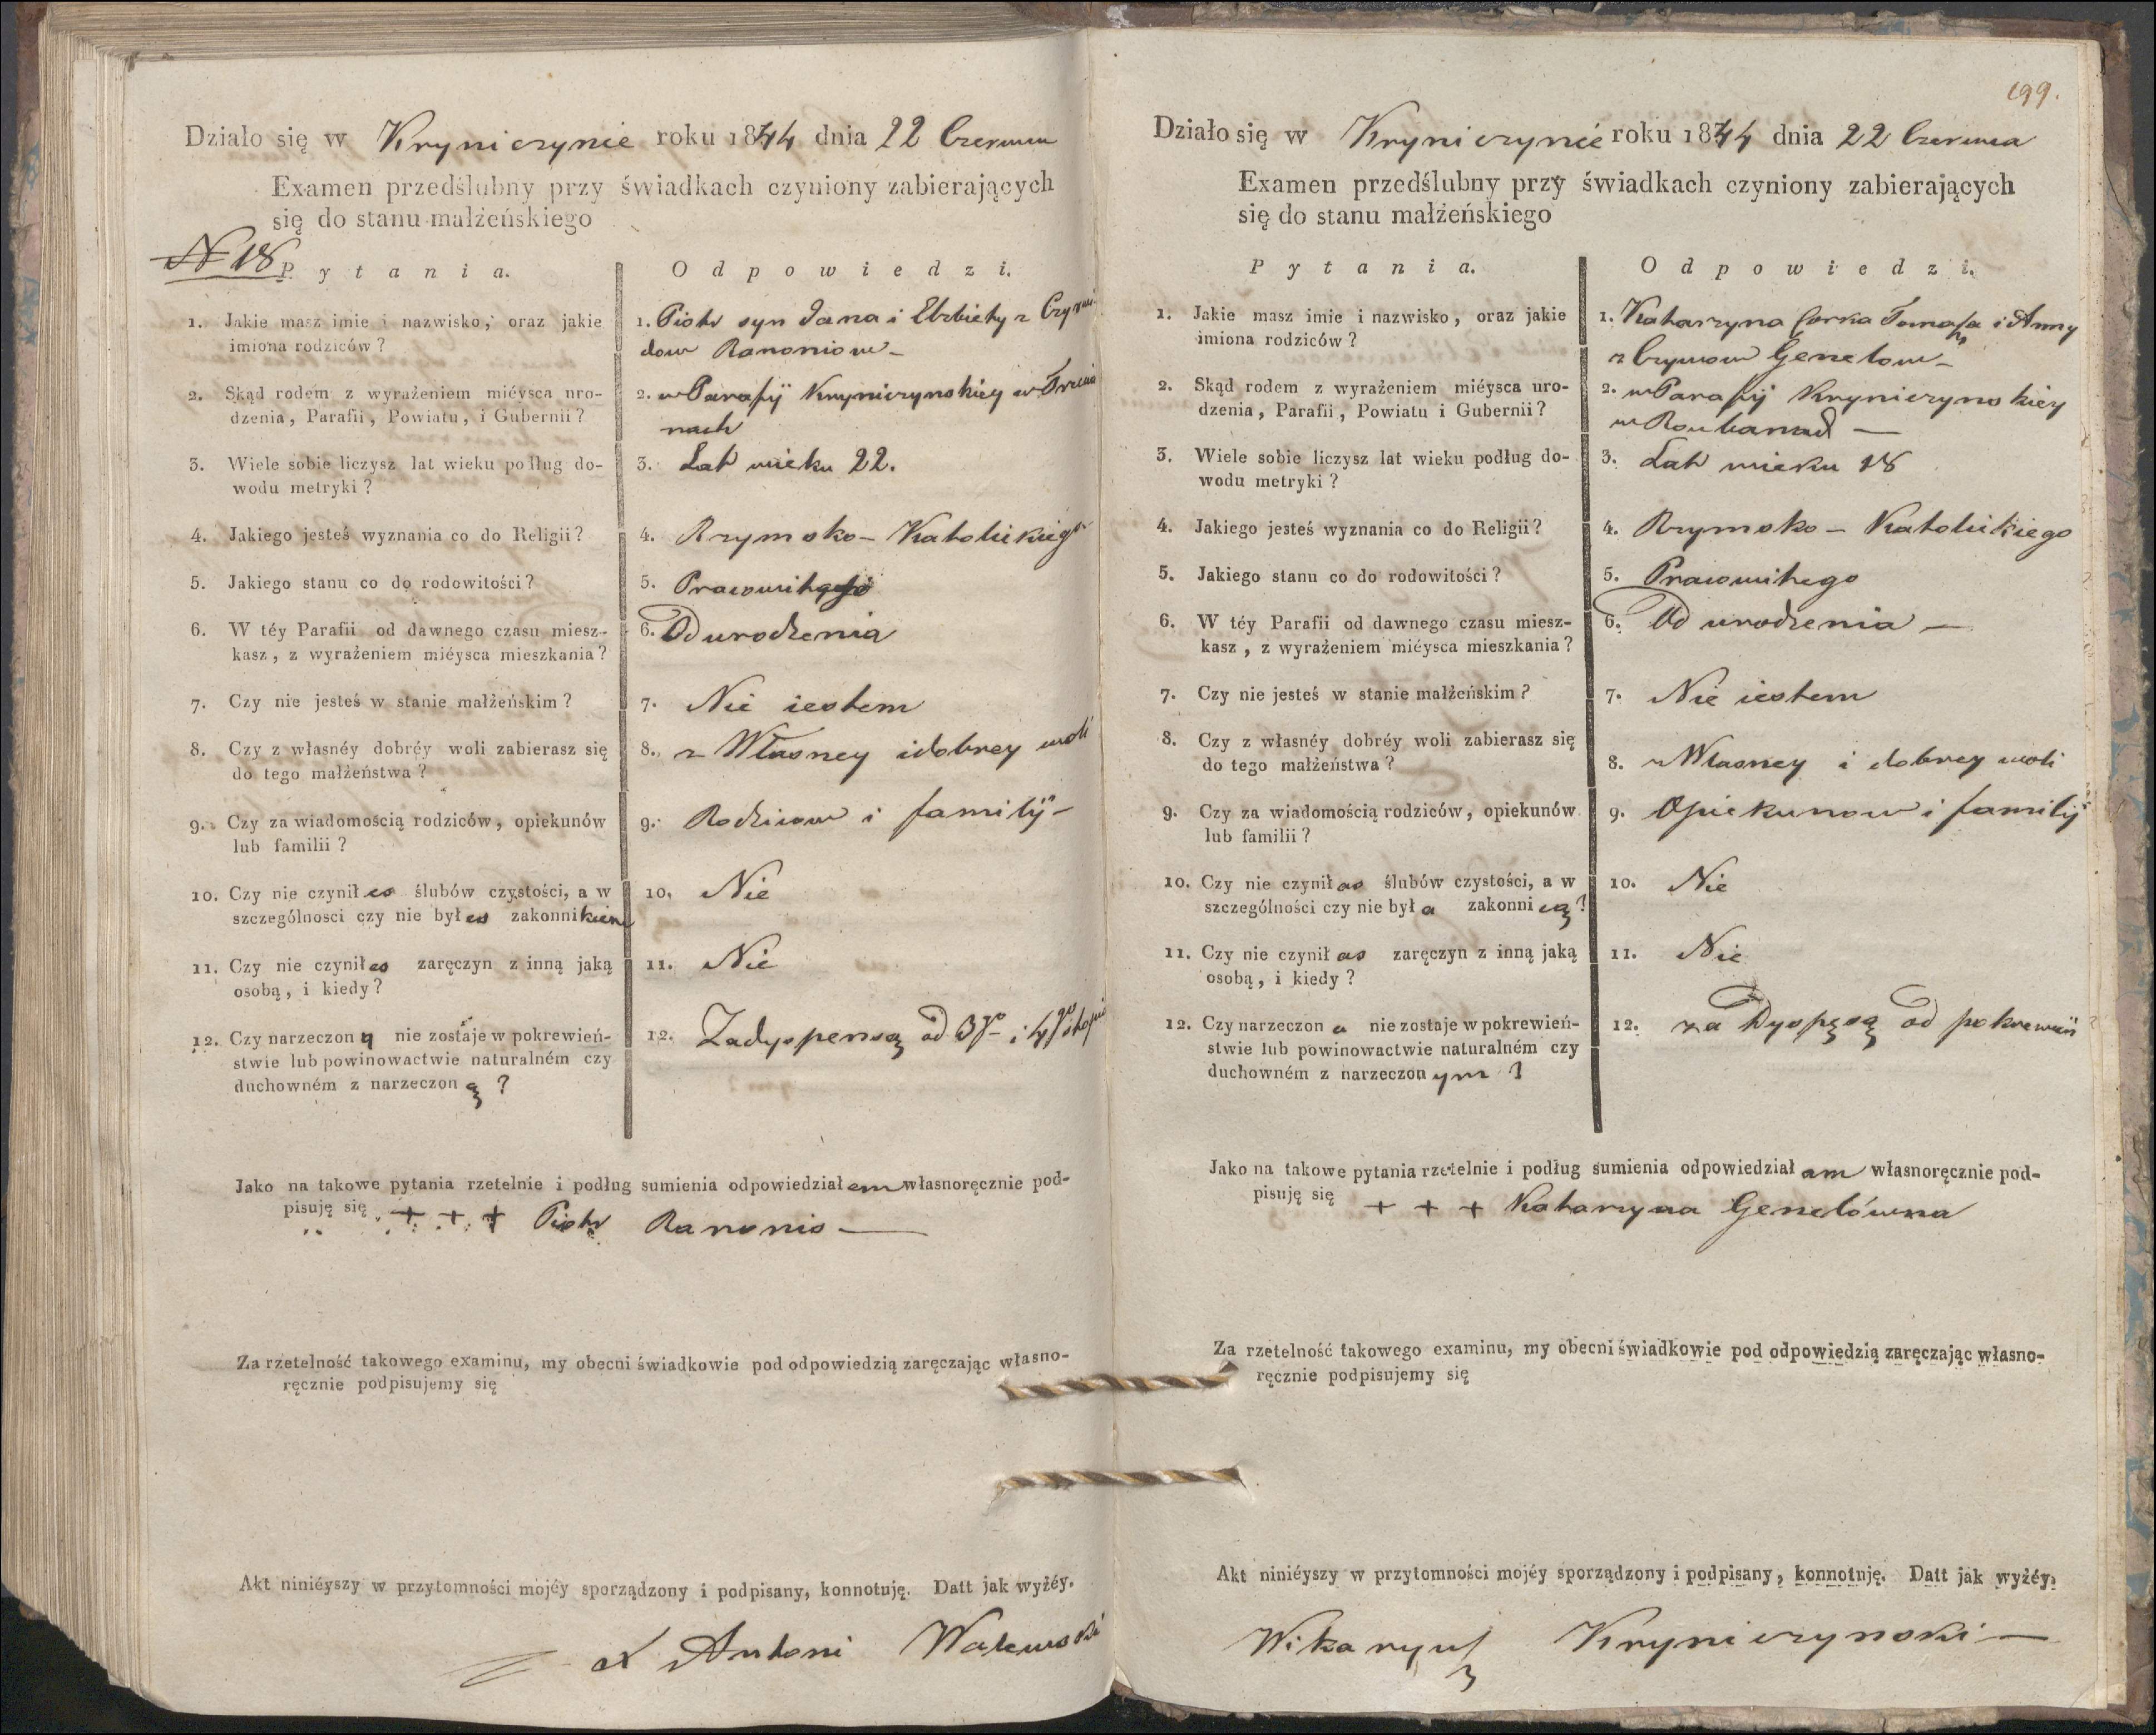 Działo się w Kryniczynie roku 1844 dnia 22 Czerwca
Examen przedślubny przy świadkach czyniony zabierających
się do stanu małżeńskiego
N 18
Pytania.
Odpowiedzi.
1. Jakie masz imie i nazwisko, oraz jakie
imiona rodziców?
1. Piotr syn Jana i Elzbiety z
dow Ranoniow
2. Skąd rodem z wyrażeniem miéysca uro-
dzenia, Parafii, Powiatu, i Gubernii?
2. w Parafij Kryniczynskiey w
nach
3. Wiele sobie liczysz lat wieku podług do-
wodu metryki?
3. Lat wieku 22.
4. Jakiego jesteś wyznania co do Religii?
4. Rzymsko-Katolickiego
5. Jakiego stanu co do rodowitości?
5. Prawowitego
6. W téy Parafii od dawnego czasu miesz-
kasz, z wyrażeniem miéysca mieszkania?
6. Od urodzenia
7. Czy nie jesteś w stanie małżeńskim?
7. Nie iestem
8. Czy z własnéy dobréy woli zabierasz się
do tego małżeństwa?
8. z Własney i dobrey woli
9. Czy za wiadomością rodziców, opiekunów
lub familii?
9. Rodzicow i familij
10. Czy nie czynił es ślubów czystości, a w
szczególnosci czy nie był es zakonnikiem
10. Nie
11. Czy nie czynił es zaręczyn z inną jaką
osobą, i kiedy?
11. Nie
12. Czy narzeczon y nie zostaje w pokrewień-
stwie lub powinowactwie naturalném czy
duchowném z narzeczon ą?
12. Zadyspensą od 3go i 4go stopnia
Jako na takowe pytania rzetelnie i podług sumienia odpowiedział em własnoręcznie pod-
pisuję się + + + Piotr Ranonis
Za rzetelność takowego examinu, my obecni świadkowie pod odpowiedzią zaręczając własno-
ręcznie podpisujemy się
Akt niniéyszy w przytomności mojéy sporządzony i podpisany, konnotuję. Datt jak wyżéy.
X Antoni Walewski
199.
Działo się w Kryniczynie roku 1844 dnia 22 Czerwca
Examen przedślubny przy świadkach czyniony zabierających
się do stanu małżeńskiego
Pytania.
Odpowiedzi.
1. Jakie masz imie i nazwisko, oraz jakie
imiona rodziców?
1. Katarzyna Corka Tomasza i Anny
z Genelow
2. Skąd rodem z wyrażeniem miéysca uro-
dzenia, Parafii, Powiatu i Gubernii?
2. w Parafij Kryniczynskiey
w
3. Wiele sobie liczysz lat wieku podług do-
wodu metryki?
3. Lat wieku 18
4. Jakiego jesteś wyznania co do Religii?
4. Rzymsko-Katolickiego
5. Jakiego stanu co do rodowitości?
5. Prawowitego
6. W téy Parafii od dawnego czasu miesz-
kasz, z wyrażeniem miéysca mieszkania?
6. Od urodzenia
7. Czy nie jesteś w stanie małżeńskim?
7. Nie iestem
8. Czy z własnéy dobréy woli zabierasz się
do tego małżeństwa?
8. z Własney i dobrey woli
9. Czy za wiadomością rodziców, opiekunów
lub familii?
9. Opiekunow i familij
10. Czy nie czynił as ślubów czystości, a w
szczególności czy nie był a zakonni cą?
10. Nie
11. Czy nie czynił as zaręczyn z inną jaką
osobą, i kiedy?
11. Nie
12. Czy narzeczon a nie zostaje w pokrewień-
stwie lub powinowactwie naturalném czy
duchowném z narzeczon ym?
12. za Dyspęsą od pokrewień
Jako na takowe pytania rzetelnie i podług sumienia odpowiedział am własnoręcznie pod-
pisuję się + + + Katarzyna Genelówna
Za rzetelność takowego examinu, my obecni świadkowie pod odpowiedzią zaręczając własno-
ręcznie podpisujemy się
Akt niniéyszy w przytomności mojéy sporządzony i podpisany, konnotuję. Datt jak wyżéy.
Wikaryusz Kryniczynski